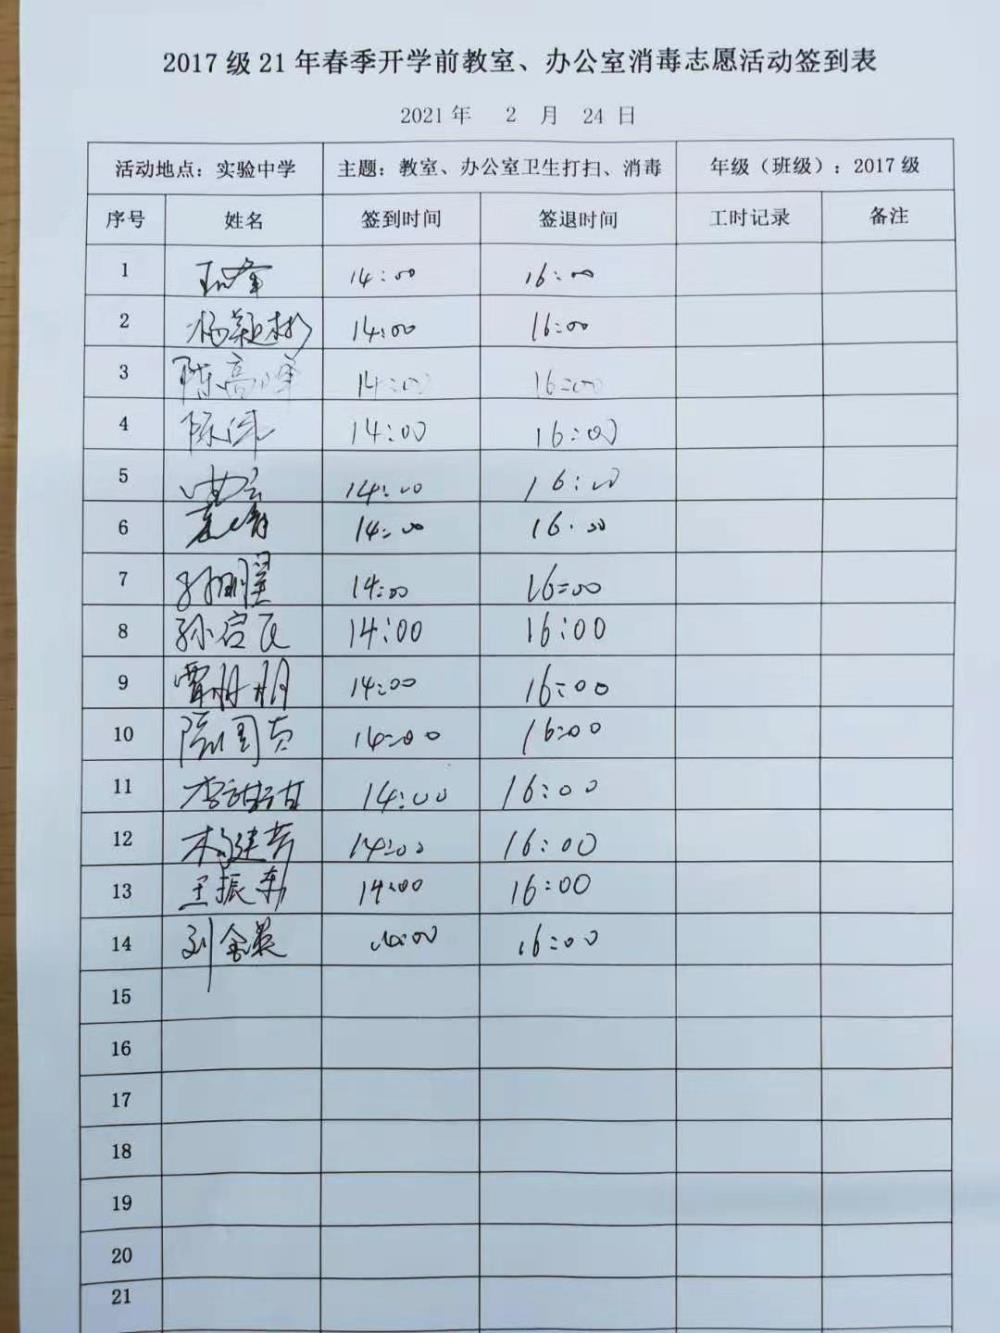 2017 级 21 年春季开学前教室、办公室消毒志愿活动签到表
2021 年 2 月 24 日
活动地点：实验中学 主题：教室、办公室卫生打扫、消毒 年级（班级）：2017 级
序号 姓名 签到时间 签退时间 工时记录 备注
1 14:00 16:00
2 杨颖彬 14:00 16:00
3 陈高峰 14:00 16:00
4 陈伟 14:00 16:00
5 14:00 16:00
6 14:00 16:00
7 孙明星 14:00 16:00
8 孙启民 14:00 16:00
9 覃明明 14:00 16:00
10 陈国友 14:00 16:00
11 14:00 16:00
12 杨建芳 14:00 16:00
13 王振东 14:00 16:00
14 刘金英 16:00
15
16
17
18
19
20
21